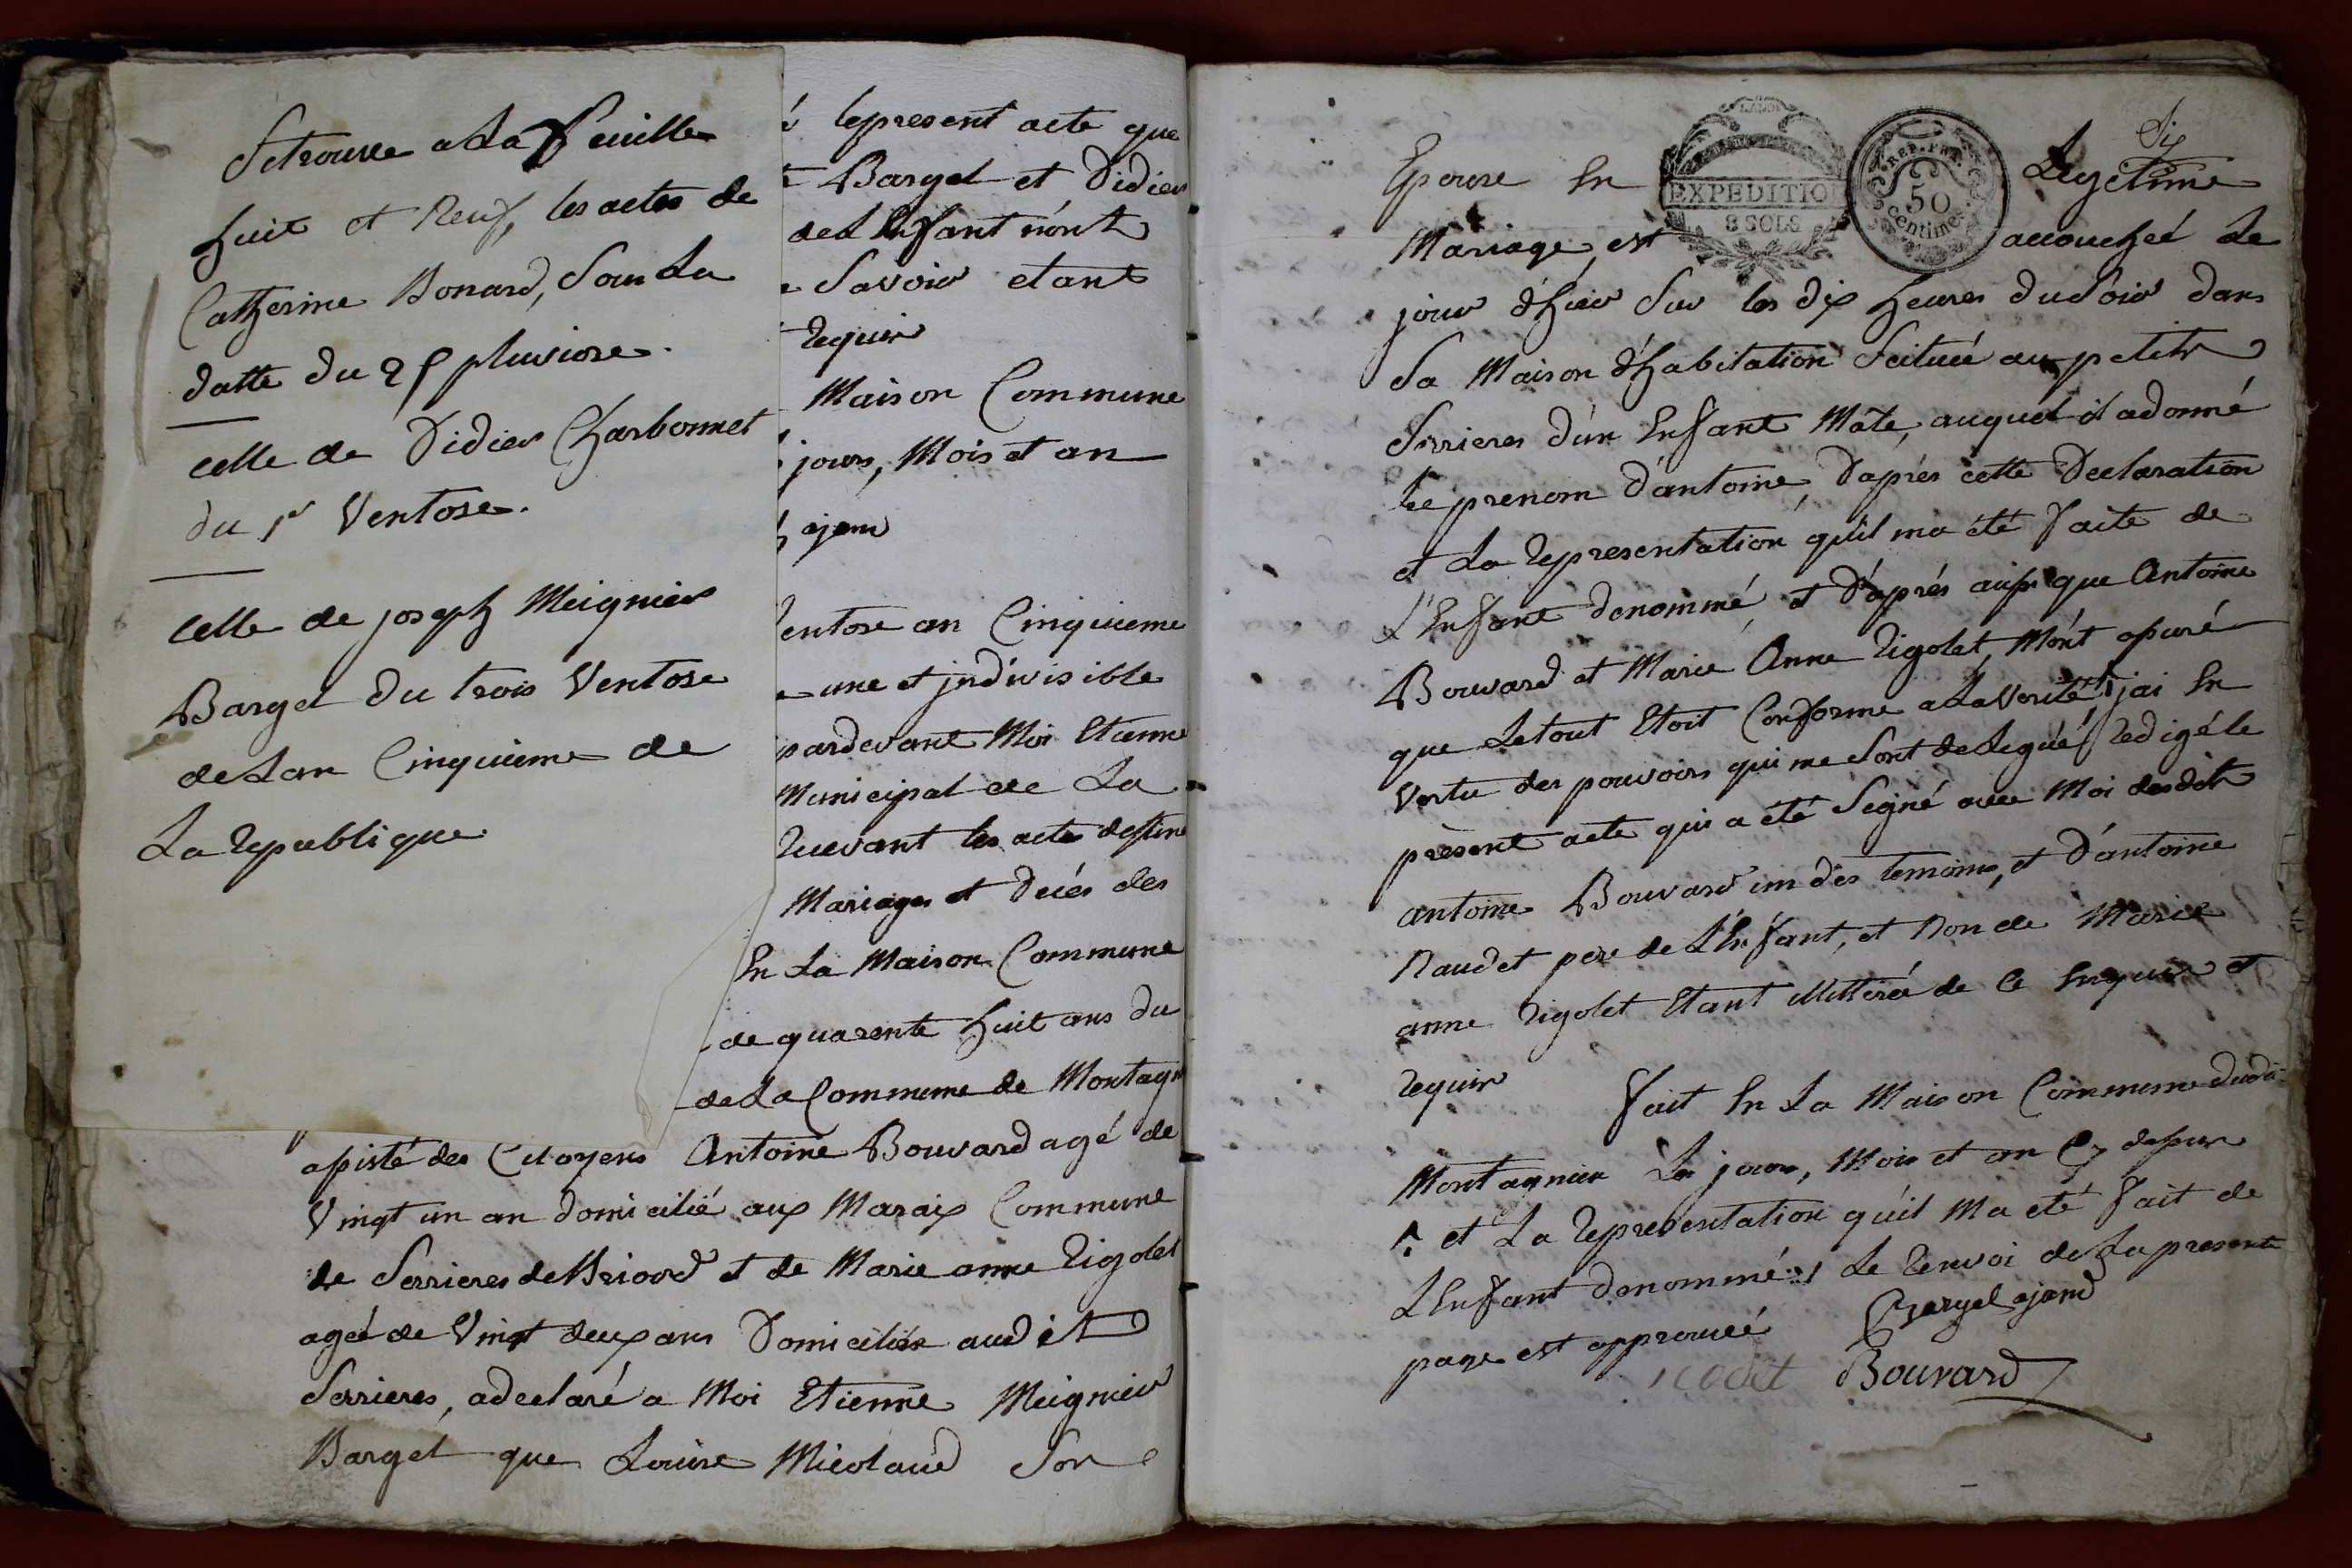 Setrouve ala feuille
huit et Neuf, les actes de
Catherine Bonard, Sous La
datte du 25 pluviose.
celle de Didier Charbonnet
du 1er Ventose.
Celle de joseph Meignier
Bargel du trois Ventose
deLan Cinquieme de
La republique
lepresent acte que
Bargel et Didier
deL Enfant n'ont
Savoir etant
requir
Maison Commune
jours, Mois et an
ajent
entose an Cinquieme
une et jndivisible
pardevant Moi Etienne
Municipal de La
recevant les actes destine
Mariages et Decés des
En La Maison Commune
de quarente huit ans du
deLa Commune de Montagn
apisté des Citoyens Antoine Bouvard agé de
Vingt un an domicilié aux Maraix Commune
de Serrieres de Briord et de Marie anne Rigolet
ageé de Vingt deux ans Domiciliés audit
Serrieres, adeclaré a Moi Etienne Meignier
Bargel que Louise Micolaud Son
Six
Epouse En EXPEDITION Legetime
8 SOLS
REP. FRA.
50
centimes
Mariage, est accoucheé Le
jour d'hier Sur les dix heures duSoir dans
Sa Maison d'habitation Scituée au petit
Serrieres d'un Enfant Mâle, auquel il adonné
Le prenom d'antoine, D'aprés cette Declaration
et La representation qu'il ma été faite de
L'Enfant denommé, et D'aprés aussi que Antoine
Bouvard et Marie Anne Rigolet, M'ont apuré
que Letout Etoit Conforme aLaVerité, j'ai En
Vertu des pouvoirs qui me Sont delegué, redigé le
présent acte qui a été Signé avec Moi desdit
antoine Bouvard un des temoins, et D'antoine
Naudet pere de L'Enfant, et Non de Marie
anne Rigolet Etant illitterée de Ce Enquise et
requir
fait En La Maison Commune dudi
Montagnieu Les jours, Mois et an Cy dessus
et La representation qu'il Ma eté fait de
LEnfant denommé, Le renvoi deLa presente
page est approuvéé
Bargel ajent
Bouvard